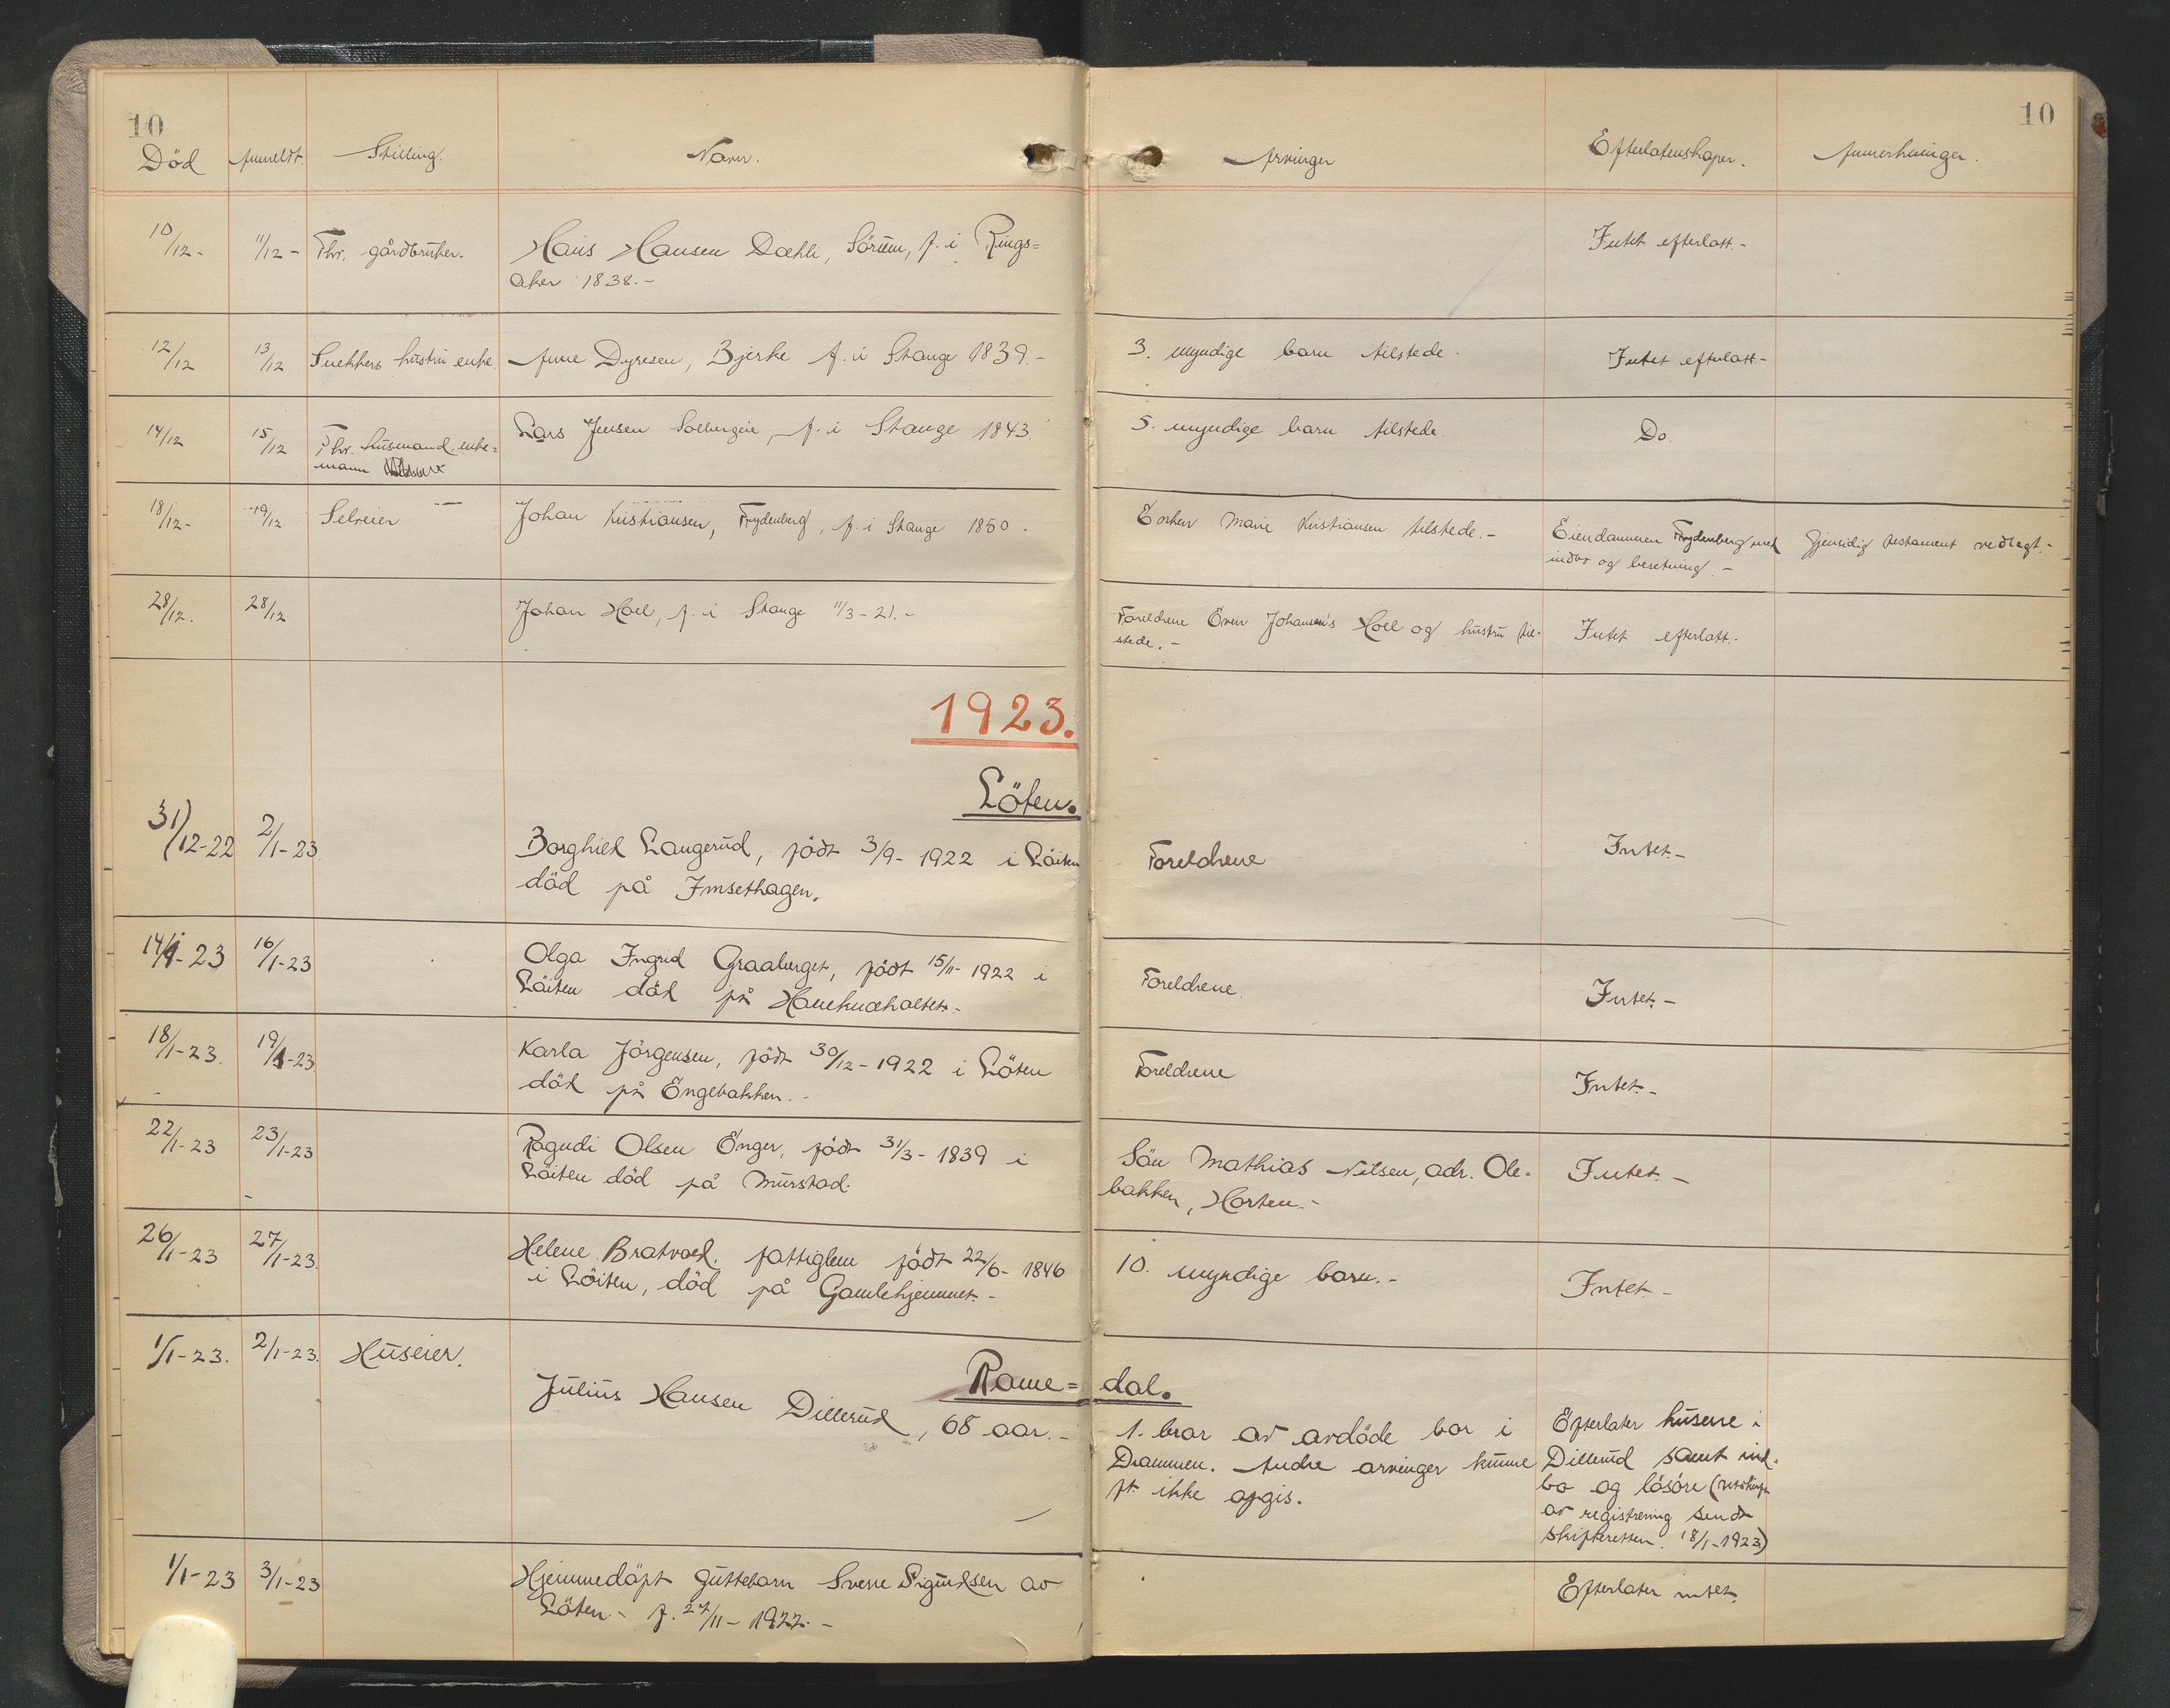 10 10
Död Anmeldt. Stilling. Navn. Arvinger Efterlatenskaper. Anmerkninger.
10/12- 11/12- Fhv. gårdbruker. Hans Hansen Dæhli, Sörum, f. i Rings= Intet efterlatt.-
aker 1838.-
12/12 13/12 Snekkers hustru enke. Anne Dyresen, Bjerke f. i Stange 1839.- 3. myndige barn tilstede. Intet efterlatt-
14/12 15/12 Fhv. husmand, enke= Lars Jensen Solbergeie, f. i Stange 1843. 5. myndige barn tilstede. Do
mann
18/12- 19/12 Selveier Johan Kristiansen, Frydenberg, f. i Stange 1850. Enken Marie Kristiansen tilstede.- Eiendommen Frydenberg med Gjensidig testament vedlagt.-
indbo og besetning.-
28/12. 28/12 Johan Hoel, f. i Stange 11/3-21.- Foreldrene Even Johansen's Hoel og hustru til- Intet efterlatt.-
stede.-
1923.
Löten.
31/12-22 2/1-23 Borghild Langerud, född 3/9-1922 i Löiten Foreldrene Intet.-
död på Imsethagen.
14/1-23 16/1-23 Olga Ingrid Graaberget, född 15/11-1922 i Foreldrene. Intet.-
Löiten död på Haneknæholtet.-
18/1-23. 19/1-23 Karla Jörgensen, född 30/12-1922 i Löten Foreldrene Intet.-
död på Engebakken.-
22/1-23 23/1-23 Ragndi Olsen Enger, född 31/3-1839 i Sön Mathias Nilsen, adr. Ole- Intet.-
Löiten död på Murstad. bakken, Horten.-
26/1-23 27/1-23. Helene Bratvold. fattiglem född 22/6-1846 10. myndige barn.- Intet-
i Löiten, död på Gamlehjemmet.-
Rome= dal.
1/1-23. 2/1-23. Huseier. Julius Hansen Dillerud, 68 aar.- 1. bror av avdöde bor i Efterlater husene i
Drammen. Andre arvinger kunne Dillerud samt ind-
pt. ikke opgis. bo og lösöre (
av registrering sendt
skifteretten. 18/1-1923)
1/1-23 3/1-23 Hjemmedöpt guttebarn Sverre Sigurdsen av Efterlater intet.
Löten.- f. 27/11-1922.-